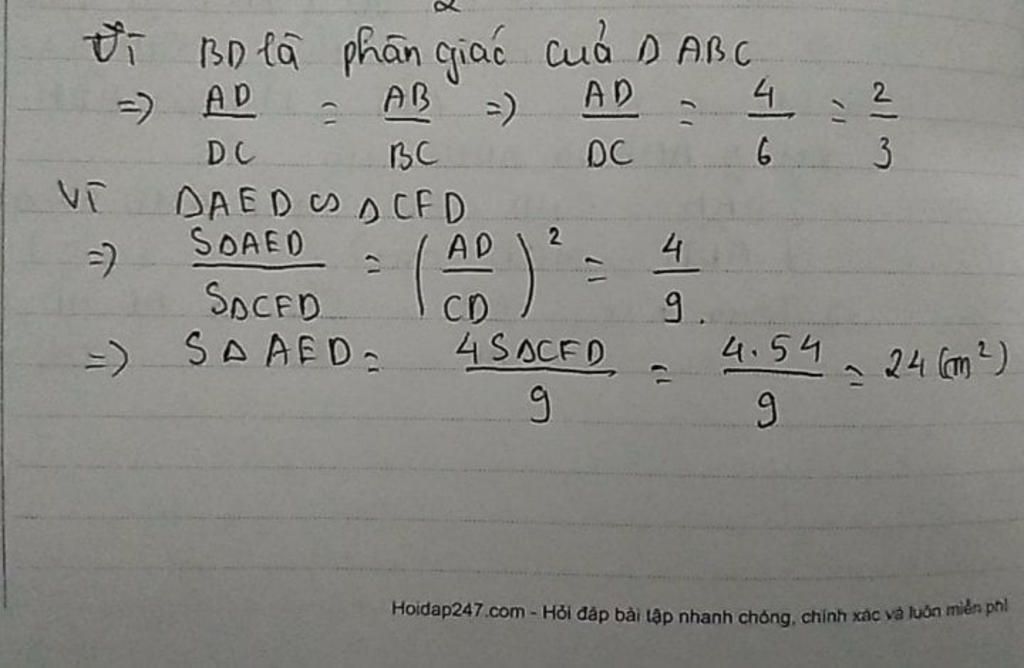 Vì BD là phân giác cuả Δ ABC
=> AD/DC = AB/BC => AD/DC = 4/6 = 2/3
Vì ΔAED ∽ ΔCFD
=> SΔAED/SΔCFD = (AD/CD)² = 4/9.
=> SΔAED = 4SΔCFD/9 = 4.54/9 = 24 (m²)
Hoidap247.com - Hỏi đáp bài tập nhanh chóng, chính xác và luôn miễn phí